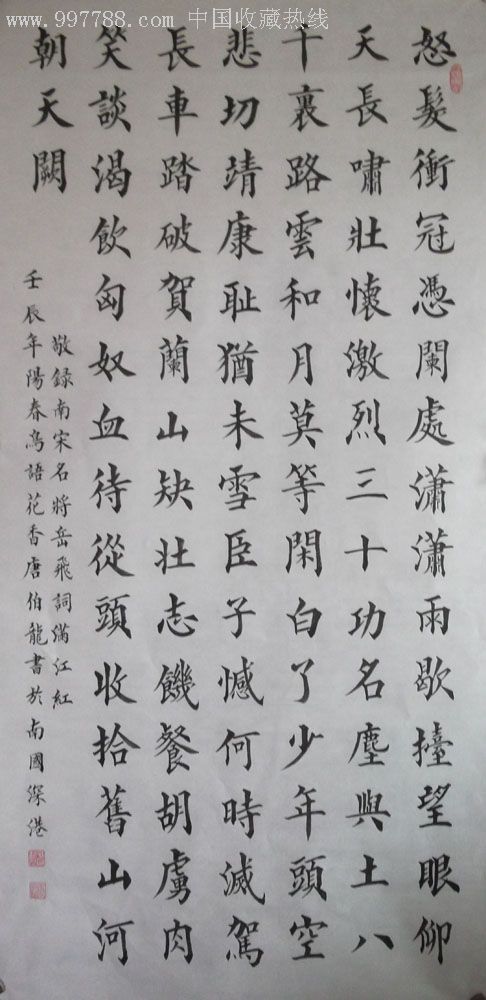 www.997788.com 中国收藏热线
怒髮衝冠憑闌處瀟瀟雨歇擡望眼仰
天長嘯壯懷激烈三十功名塵與土八
千裏路雲和月莫等閑白了少年頭空
悲切靖康耻猶未雪臣子憾何時滅駕
長車踏破賀蘭山缺壯志饑餐胡虜肉
笑談渴飲匈奴血待從頭收拾舊山河
朝天闕
敬録南宋名將岳飛詞滿江紅
壬辰年陽春鳥語花香唐伯龍書於南國深港